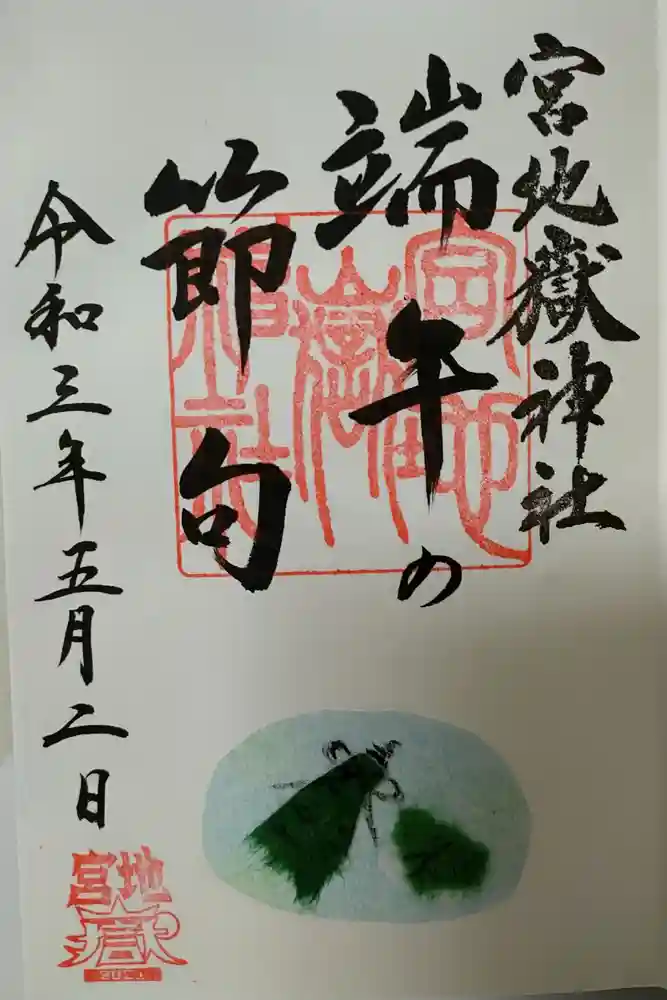 宮地嶽神社
端午の
節句
令和三年五月二日
宮地嶽神社
宮地
嶽
2021